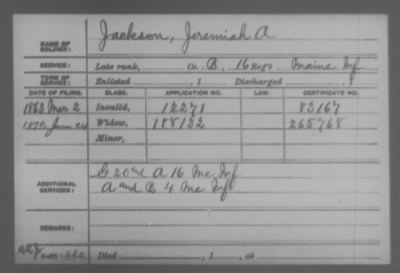 NAME OF SOLDIER: Jackson, Jeremiah A
SERVICE: Late rank, Co. B, 16 Reg't Maine Inf
TERM OF SERVICE: Enlisted , 1 Discharged , 1
DATE OF FILING. CLASS. APPLICATION NO. LAW. CERTIFICATE NO.
1863 Mar 2 Invalid, 12271 83167
1879, Jun 24 Widow, 188132 265768
Minor,
ADDITIONAL SERVICES: G 20 and A 16 Me Inf
A and B 4 Me Inf
REMARKS:
Died , 1 , at